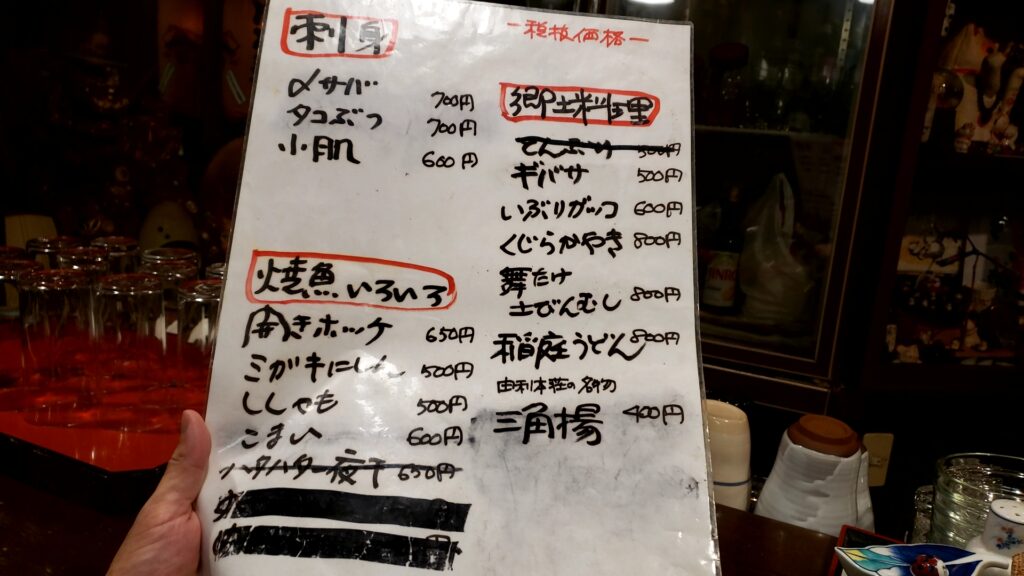 刺身
〆サバ 700円
タコぶつ 700円
小肌 600円
焼魚いろいろ
開きホッケ 650円
ミガキにしん 500円
ししゃも 500円
こまい 600円
ハタハタ一夜干 650円
円
ー税抜価格ー
郷土料理
てんぷら 500円
ギバサ 500円
いぶりガッコ 600円
くじらかやき 800円
舞たけ
土びんむし 800円
稲庭うどん 800円
由利本荘の名物
三角揚 400円